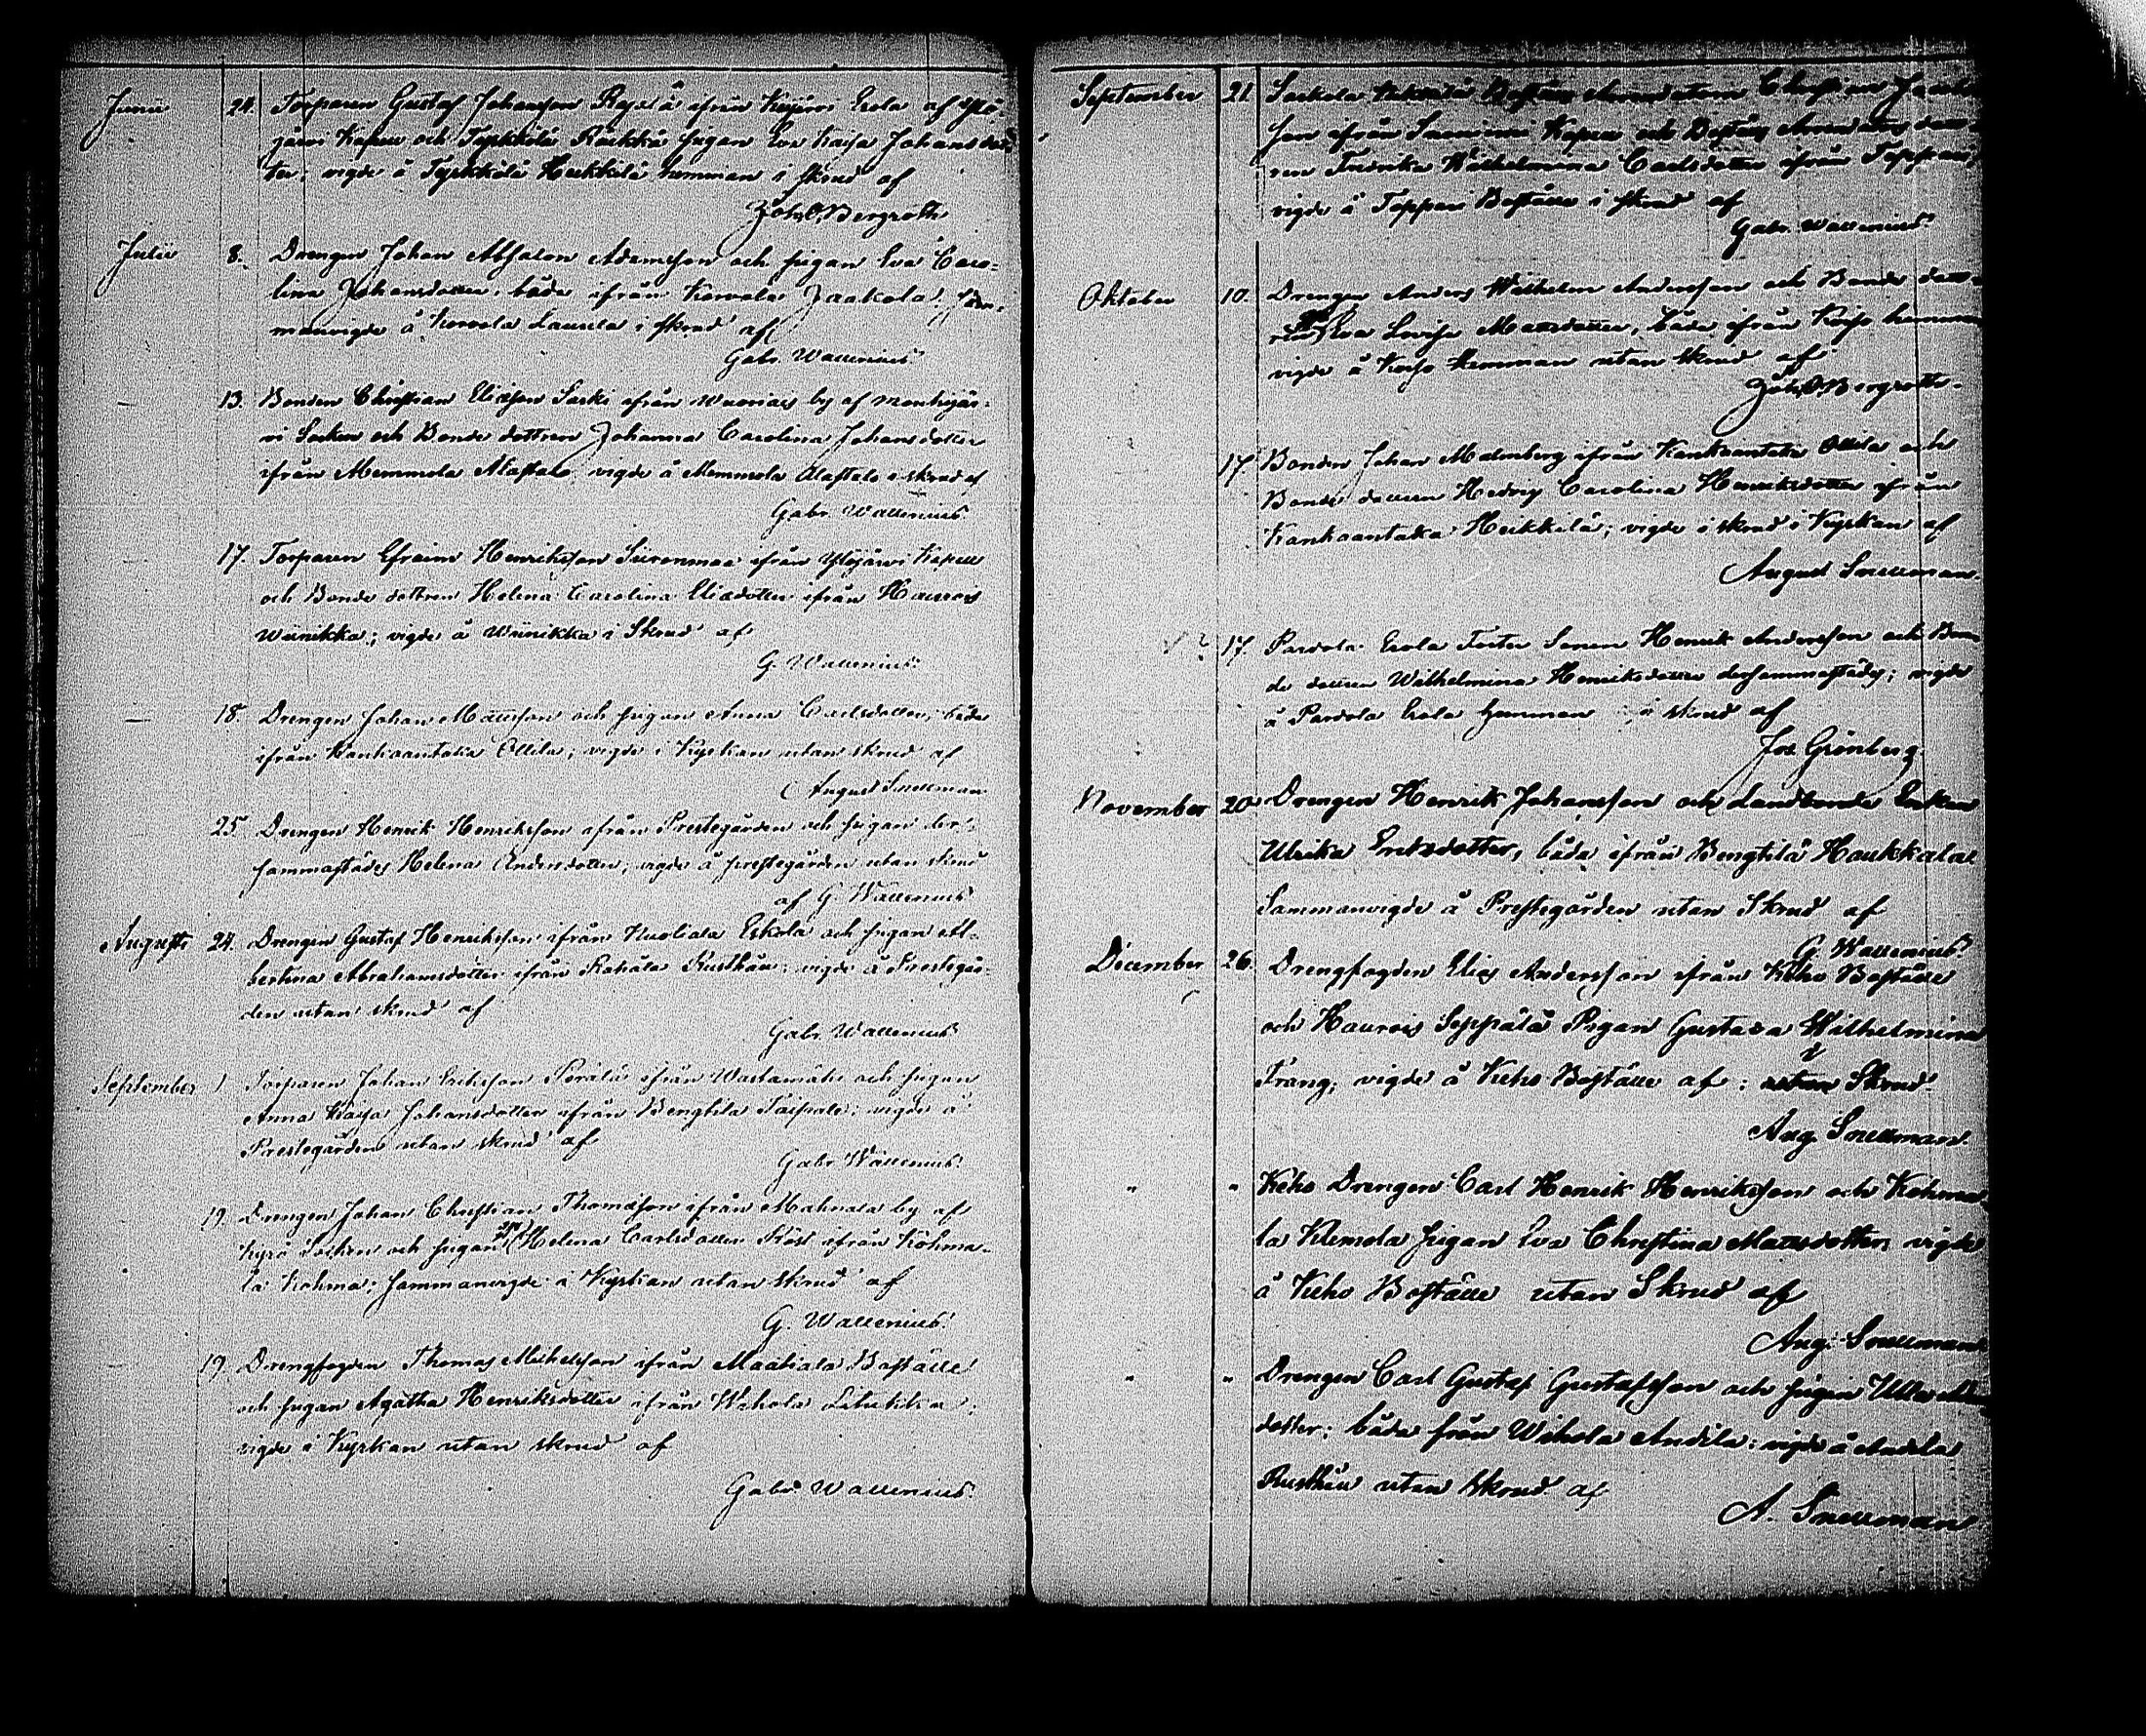 Junii 24. Torparen Gustaf Johansson Rajala ifrån Kyrö Erola af Ylö-
järvi Kapell och Tyrkkölä Räikkä pigan Eva Kaisa Johansdot-
ter; vigde å Tyrkkölä Heikkilä hemman i skrud af
Joh. O. Bergroth
Julii 8. Drengen Johan Absalon Adamsson och pigan Eva Caro-
lina Johansdotter, både ifrån Korvola Jaakola; sam-
manvigde å Korvola Laurila i skrud af
Gabr. Wallenius
— 13. Bonden Christian Eliæson Sarki ifrån Wuoriais by af Mouhijär-
vi Socken och Bonde dottren Johanna Carolina Johansdotter
ifrån Memmola Alastalo, vigde å Memmola Alastalo i skrud af
Gabr. Wallenius
17. Torparen Efraim Henriksson Siironmaa ifrån Ylöjärvi Kapell
och Bonde dottren Helena Carolina Eliædotter ifrån Haurois
Wiinikka; vigde å Wiinikka i Skrud af
G. Wallenius
— 18. Drengen Johan Mattsson och pigan Anna Carlsdotter, båda
ifrån Kankaantaka Ollila; vigde i Kyrkan utan skrud af
August Snellman
25. Drengen Henrik Henriksson ifrån Prestegården och pigan der-
sammastädes Helena Andersdotter; vigde å prestegården utan skrud
af G. Wallenius
Augusti 24. Drengen Gustaf Henriksson ifrån Kuoliala Eskola och pigan Al-
bertina Abrahamsdotter ifrån Rahala Rusthåll; vigde å Prestegår-
den utan skrud af
Gabr. Wallenius
September 1. Torparen Johan Eriksson Perälä ifrån Wastamäki och pigan
Anna Kaisa Johansdotter ifrån Bengtilä Taipale; vigde å
Prestegården utan skrud af
Gabr. Wallenius
19. Drengen Johan Christian Thomasson ifrån Mahnala by af
Kyrö Socken och pigan Helena Carlsdotter ifrån Kohma-
la Kohma; sammanvigde i Kyrkan utan skrud af
G. Wallenius
19. Drengfogden Thomas Michelsson ifrån Maatiala Boställe
och pigan Agatha Henriksdotter ifrån Wahola
vigde i Kyrkan utan skrud af
Gabr. Wallenius
September 21 Sarkola Boställs Christian
son ifrån Kapell och Boställs
ren Fredrika Wilhelmina Carlsdotter ifrån Toppari,
vigde å Toppari Boställe i skrud af
Gabr. Wallenius
Oktober 10. Drengen Anders Wilhelm Andersson och Bonde dott-
ren Eva Lovisa Mattsdotter, både ifrån Keiso hemman
vigde å Keiso hemman utan skrud af
Joh. O. Bergroth
17 Bonden Johan Malmberg ifrån Kankaantaka Ollila och
Bonde dottren Hedvig Carolina Henriksdotter ifrån
Kankaantaka Heikkilä; vigde i skrud i Kyrkan af
August Snellman
17 Pardola Erola Foster Sonen Henrik Andersson och Bon-
de dottren Wilhelmina Henriksdotter dersammastädes; vigde
å Pardola Erola hemman i skrud af
Jos. Grönberg
November 20 Drengen Henrik Johansson och Landbonde Enkan
Ulrika Eriksdotter, båda ifrån Bengtilä Haukkala
Sammanvigde å Prestegården utan Skrud af
G. Wallenius
December 26. Drengfogden Elias Andersson ifrån Kieho Boställe
och Haurois Seppälä Pigan Gustava Wilhelmina
Frang; vigde å Kieho Boställe af; i Skrud
Aug. Snellman
" " Kieho Drengen Carl Henrik Henriksson och Kohma-
la Klemola pigan Eva Christina Mattsdotter vigde
å Kieho Boställe utan Skrud af
Aug. Snellman
" " Drengen Carl Gustaf Gustafsson och pigan Ulla
dotter; båda från Wihola Andila; vigde å Andila
Rusthåll utan skrud af
A. Snellman